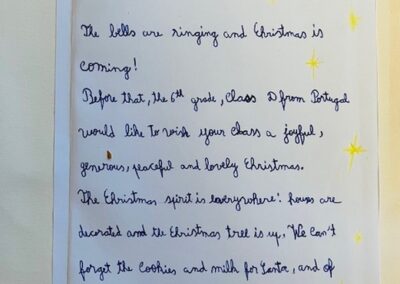 The bells are ringing and Christmas is
coming!
Before that, the 6th grade, Class D from Portugal
would like to wish your Class a joyful,
generous, peaceful and lovely Christmas.
The Christmas spirit is everywhere: houses are
decorated and the Christmas tree is up. We Can't
forget the Cookies and milk for Santa, and of